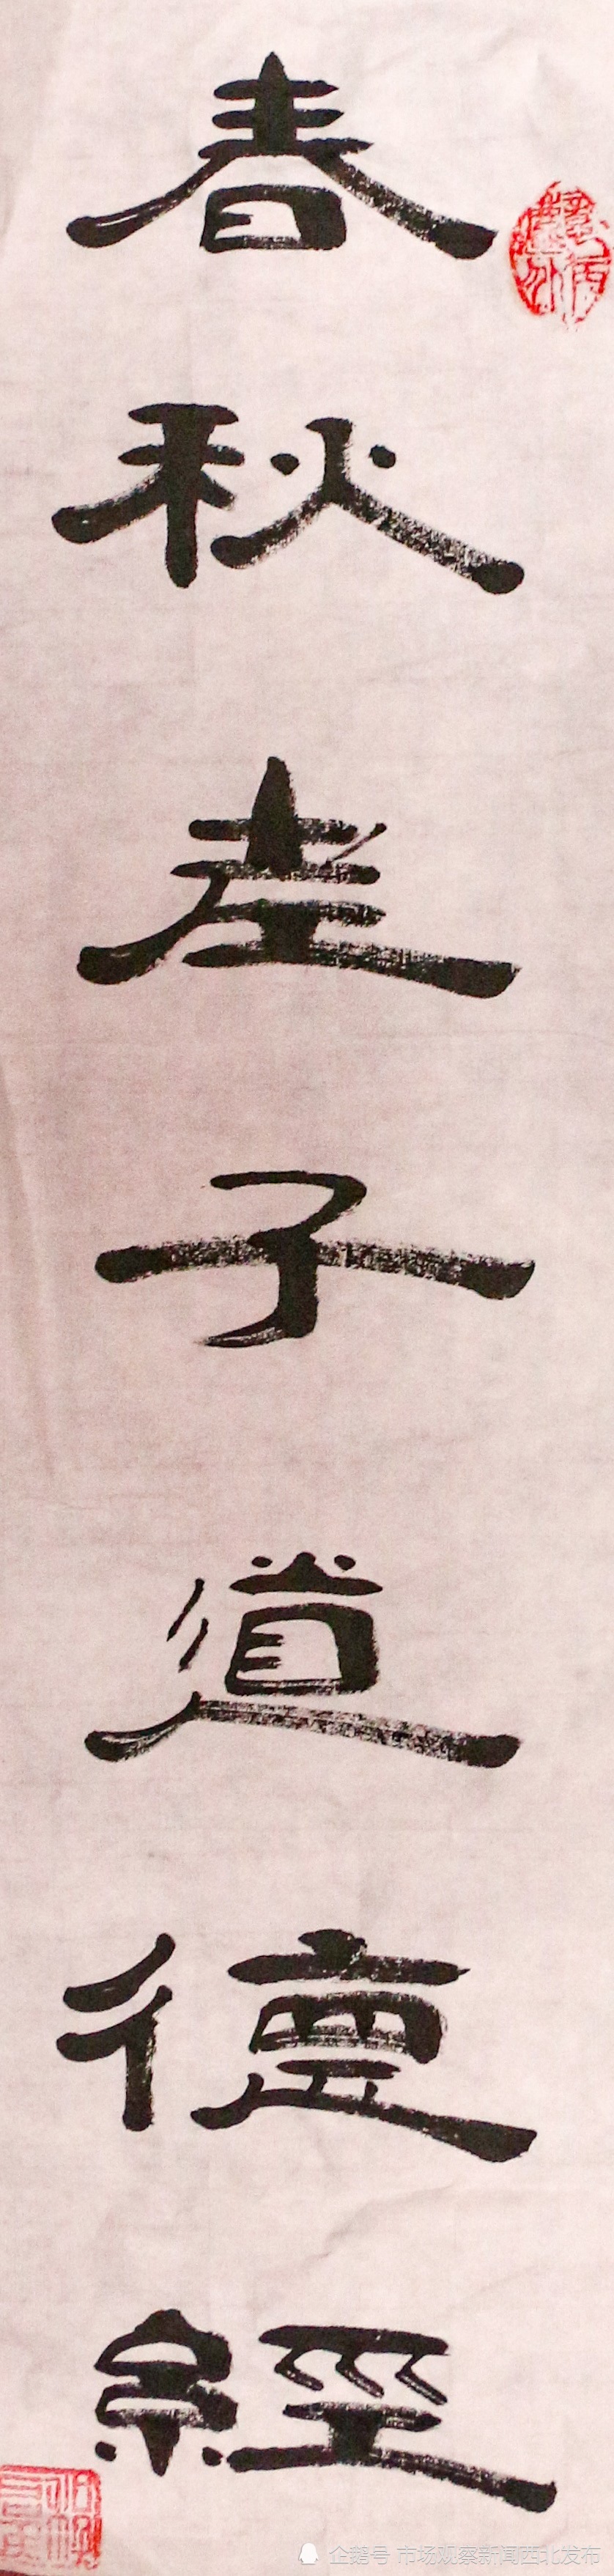 春秋老子道德經
企鹅号 市场观察新闻西北发布